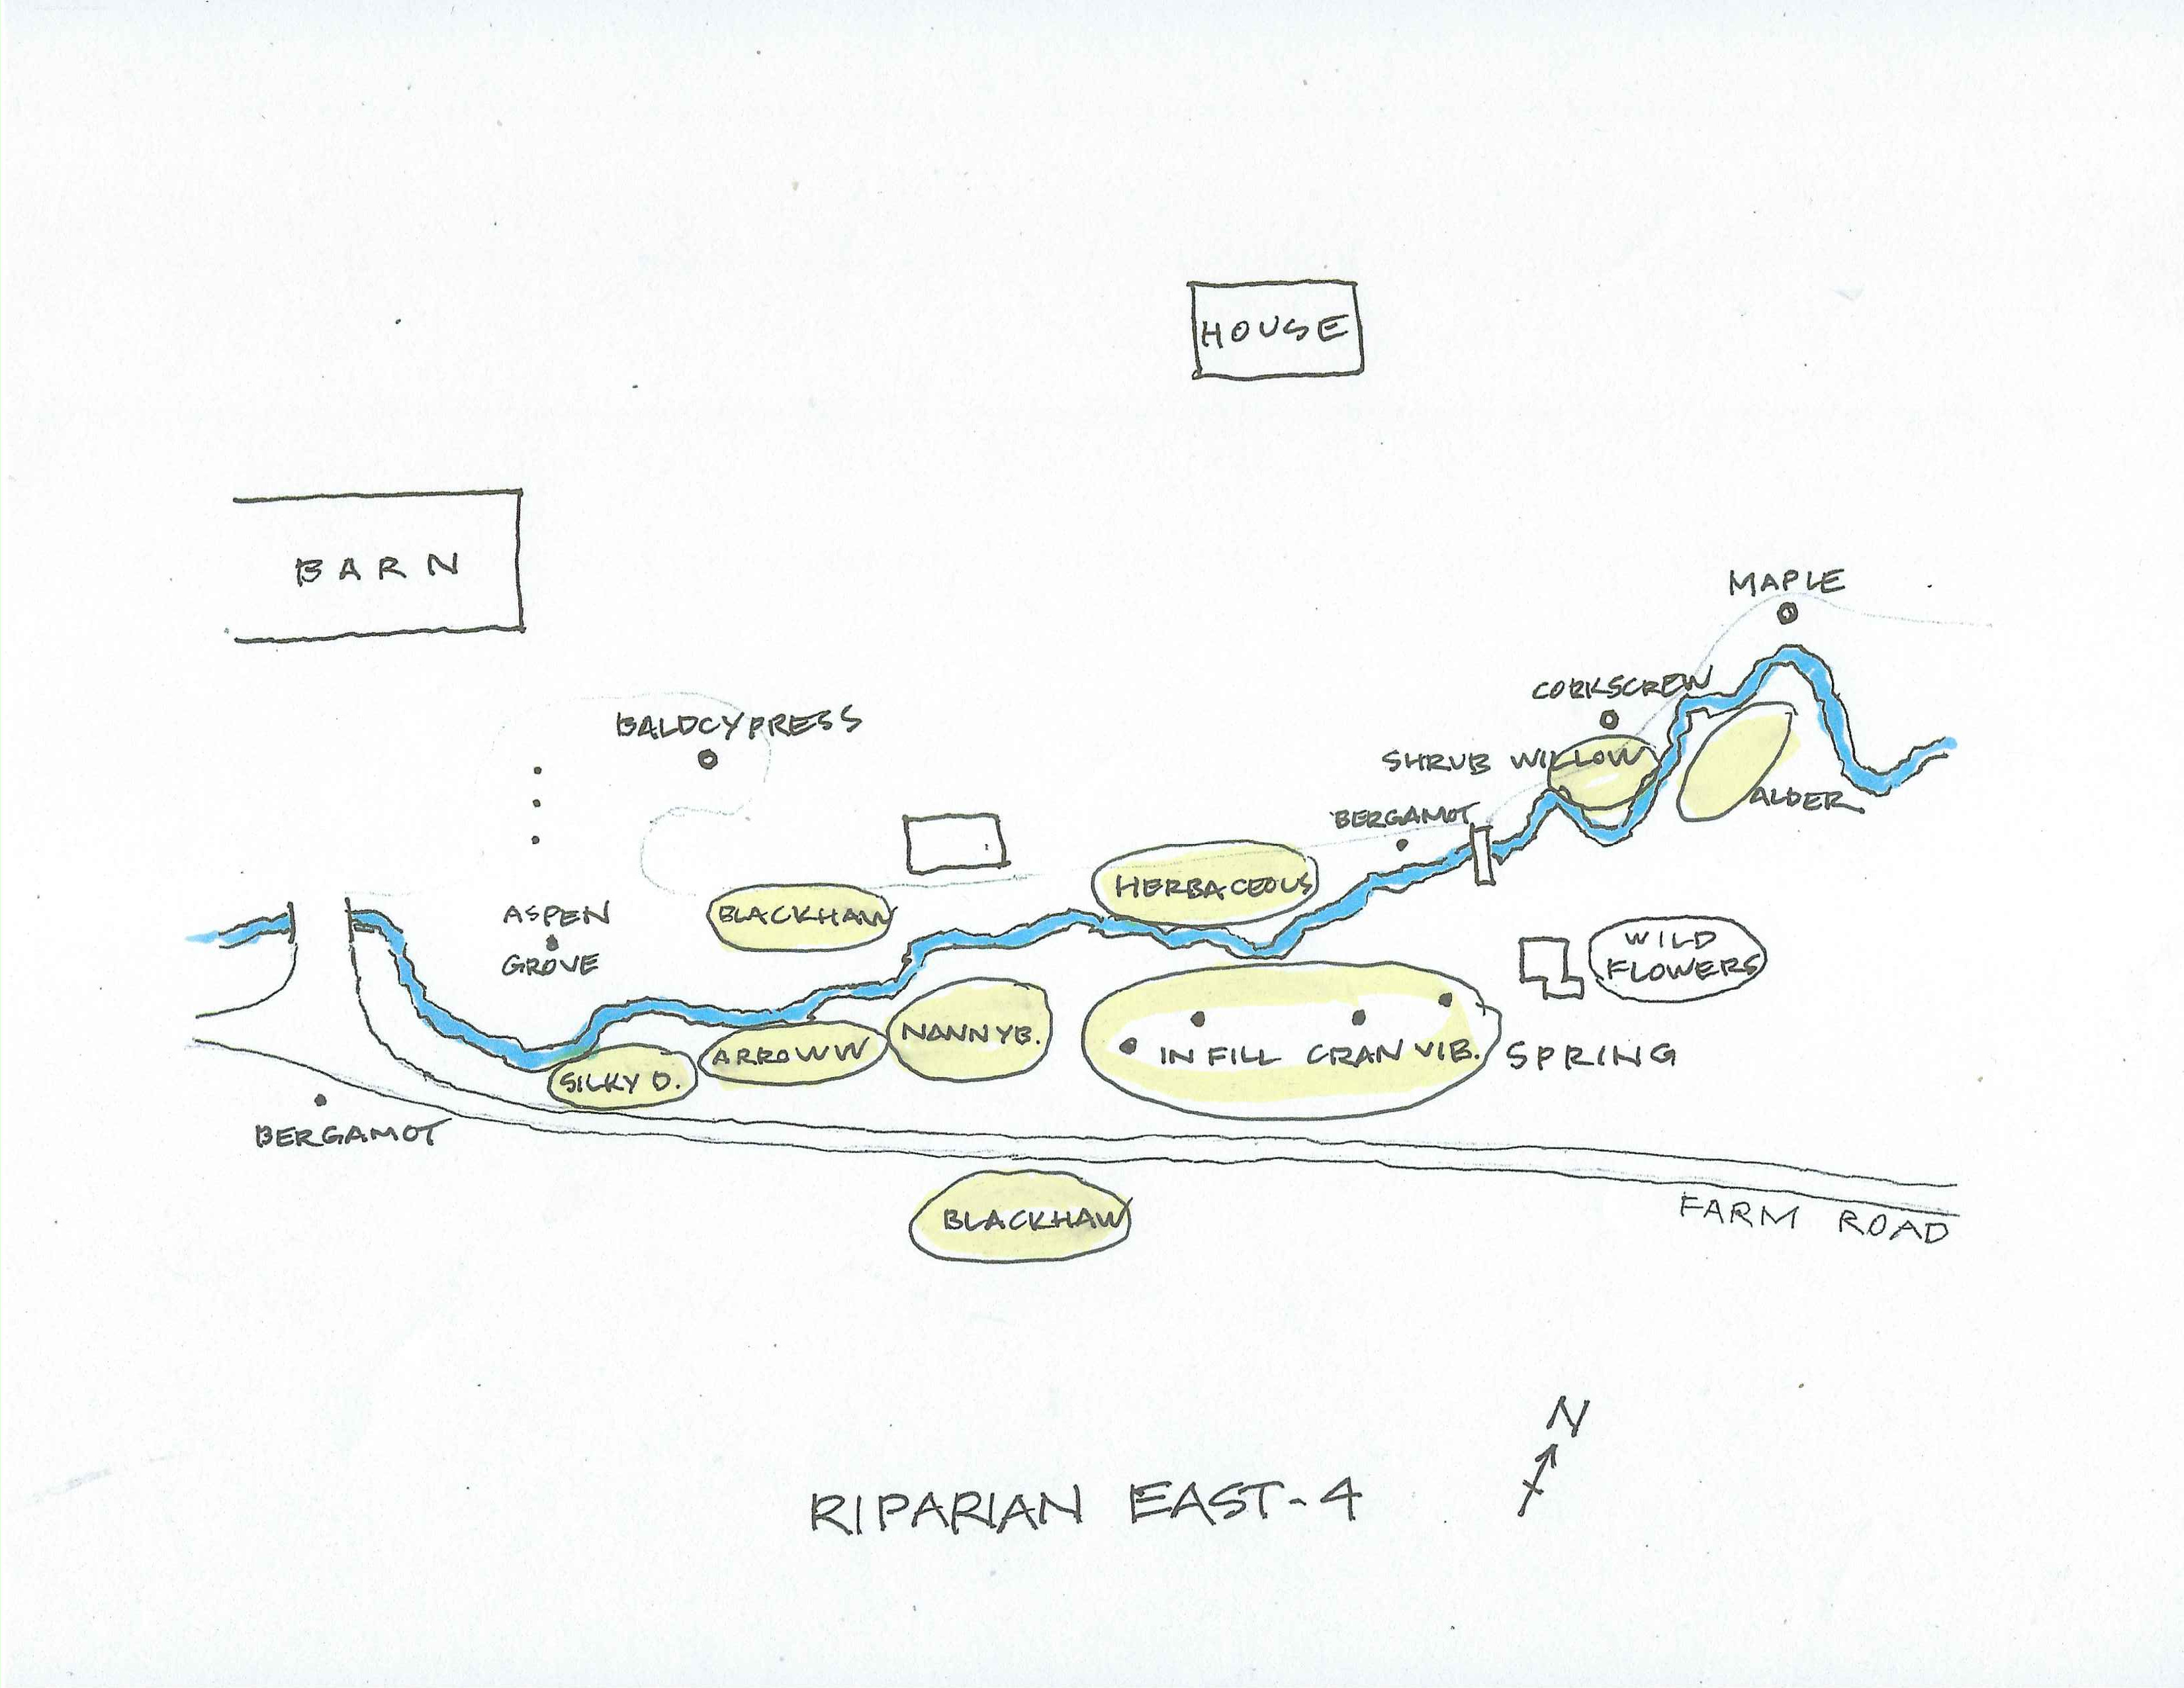 HOUSE
BARN
MAPLE
CORKSCREW
BALDCYPRESS
SHRUB WILLOW
ALDER
BERGAMOT
HERBACEOUS
ASPEN
GROVE
BLACKHAW
WILD
FLOWERS
NANNYB.
ARROWW
IN FILL CRAN VIB.
SPRING
SILKY D.
BERGAMOT
BLACKHAW
FARM ROAD
N
RIPARIAN EAST-4